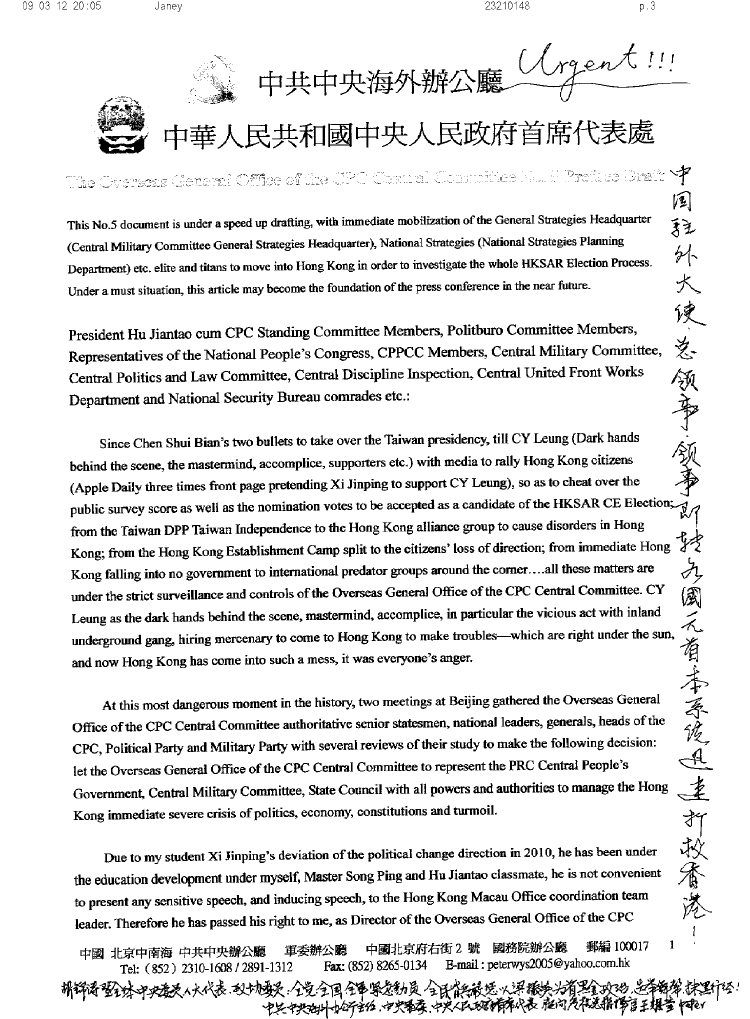 09 03 12 20:05 Janey 23210148 p.3
Urgent!!!
中共中央海外辦公廳
中華人民共和國中央人民政府首席代表處
The Overseas General Office of the CPC Central Committee No.5 Preface Draft
This No.5 document is under a speed up drafting, with immediate mobilization of the General Strategies Headquarter
(Central Military Committee General Strategies Headquarter), National Strategies (National Strategies Planning
Department) etc. elite and titans to move into Hong Kong in order to investigate the whole HKSAR Election Process.
Under a must situation, this article may become the foundation of the press conference in the near future.
President Hu Jiantao cum CPC Standing Committee Members, Politburo Committee Members,
Representatives of the National People's Congress, CPPCC Members, Central Military Committee,
Central Politics and Law Committee, Central Discipline Inspection, Central United Front Works
Department and National Security Bureau comrades etc.:
Since Chen Shui Bian's two bullets to take over the Taiwan presidency, till CY Leung (Dark hands
behind the scene, the mastermind, accomplice, supporters etc.) with media to rally Hong Kong citizens
(Apple Daily three times front page pretending Xi Jinping to support CY Leung), so as to cheat over the
public survey score as well as the nomination votes to be accepted as a candidate of the HKSAR CE Election;
from the Taiwan DPP Taiwan Independence to the Hong Kong alliance group to cause disorders in Hong
Kong; from the Hong Kong Establishment Camp split to the citizens' loss of direction; from immediate Hong
Kong falling into no government to international predator groups around the corner….all these matters are
under the strict surveillance and controls of the Overseas General Office of the CPC Central Committee. CY
Leung as the dark hands behind the scene, mastermind, accomplice, in particular the vicious act with inland
underground gang, hiring mercenary to come to Hong Kong to make troubles—which are right under the sun,
and now Hong Kong has come into such a mess, it was everyone's anger.
At this most dangerous moment in the history, two meetings at Beijing gathered the Overseas General
Office of the CPC Central Committee authoritative senior statesmen, national leaders, generals, heads of the
CPC, Political Party and Military Party with several reviews of their study to make the following decision:
let the Overseas General Office of the CPC Central Committee to represent the PRC Central People's
Government, Central Military Committee, State Council with all powers and authorities to manage the Hong
Kong immediate severe crisis of politics, economy, constitutions and turmoil.
Due to my student Xi Jinping's deviation of the political change direction in 2010, he has been under
the education development under myself, Master Song Ping and Hu Jiantao classmate, he is not convenient
to present any sensitive speech, and inducing speech, to the Hong Kong Macau Office coordination team
leader. Therefore he has passed his right to me, as Director of the Overseas General Office of the CPC
中國 北京中南海 中共中央辦公廳 軍委辦公廳 中國北京府右街2號 國務院辦公廳 郵編100017 1
Tel: (852) 2310-1608 / 2891-1312 Fax: (852) 8265-0134 E-mail : peterwys2005@yahoo.com.hk
中国驻外大使·总领事·领事即转各國元首本系统迅速打救香港!